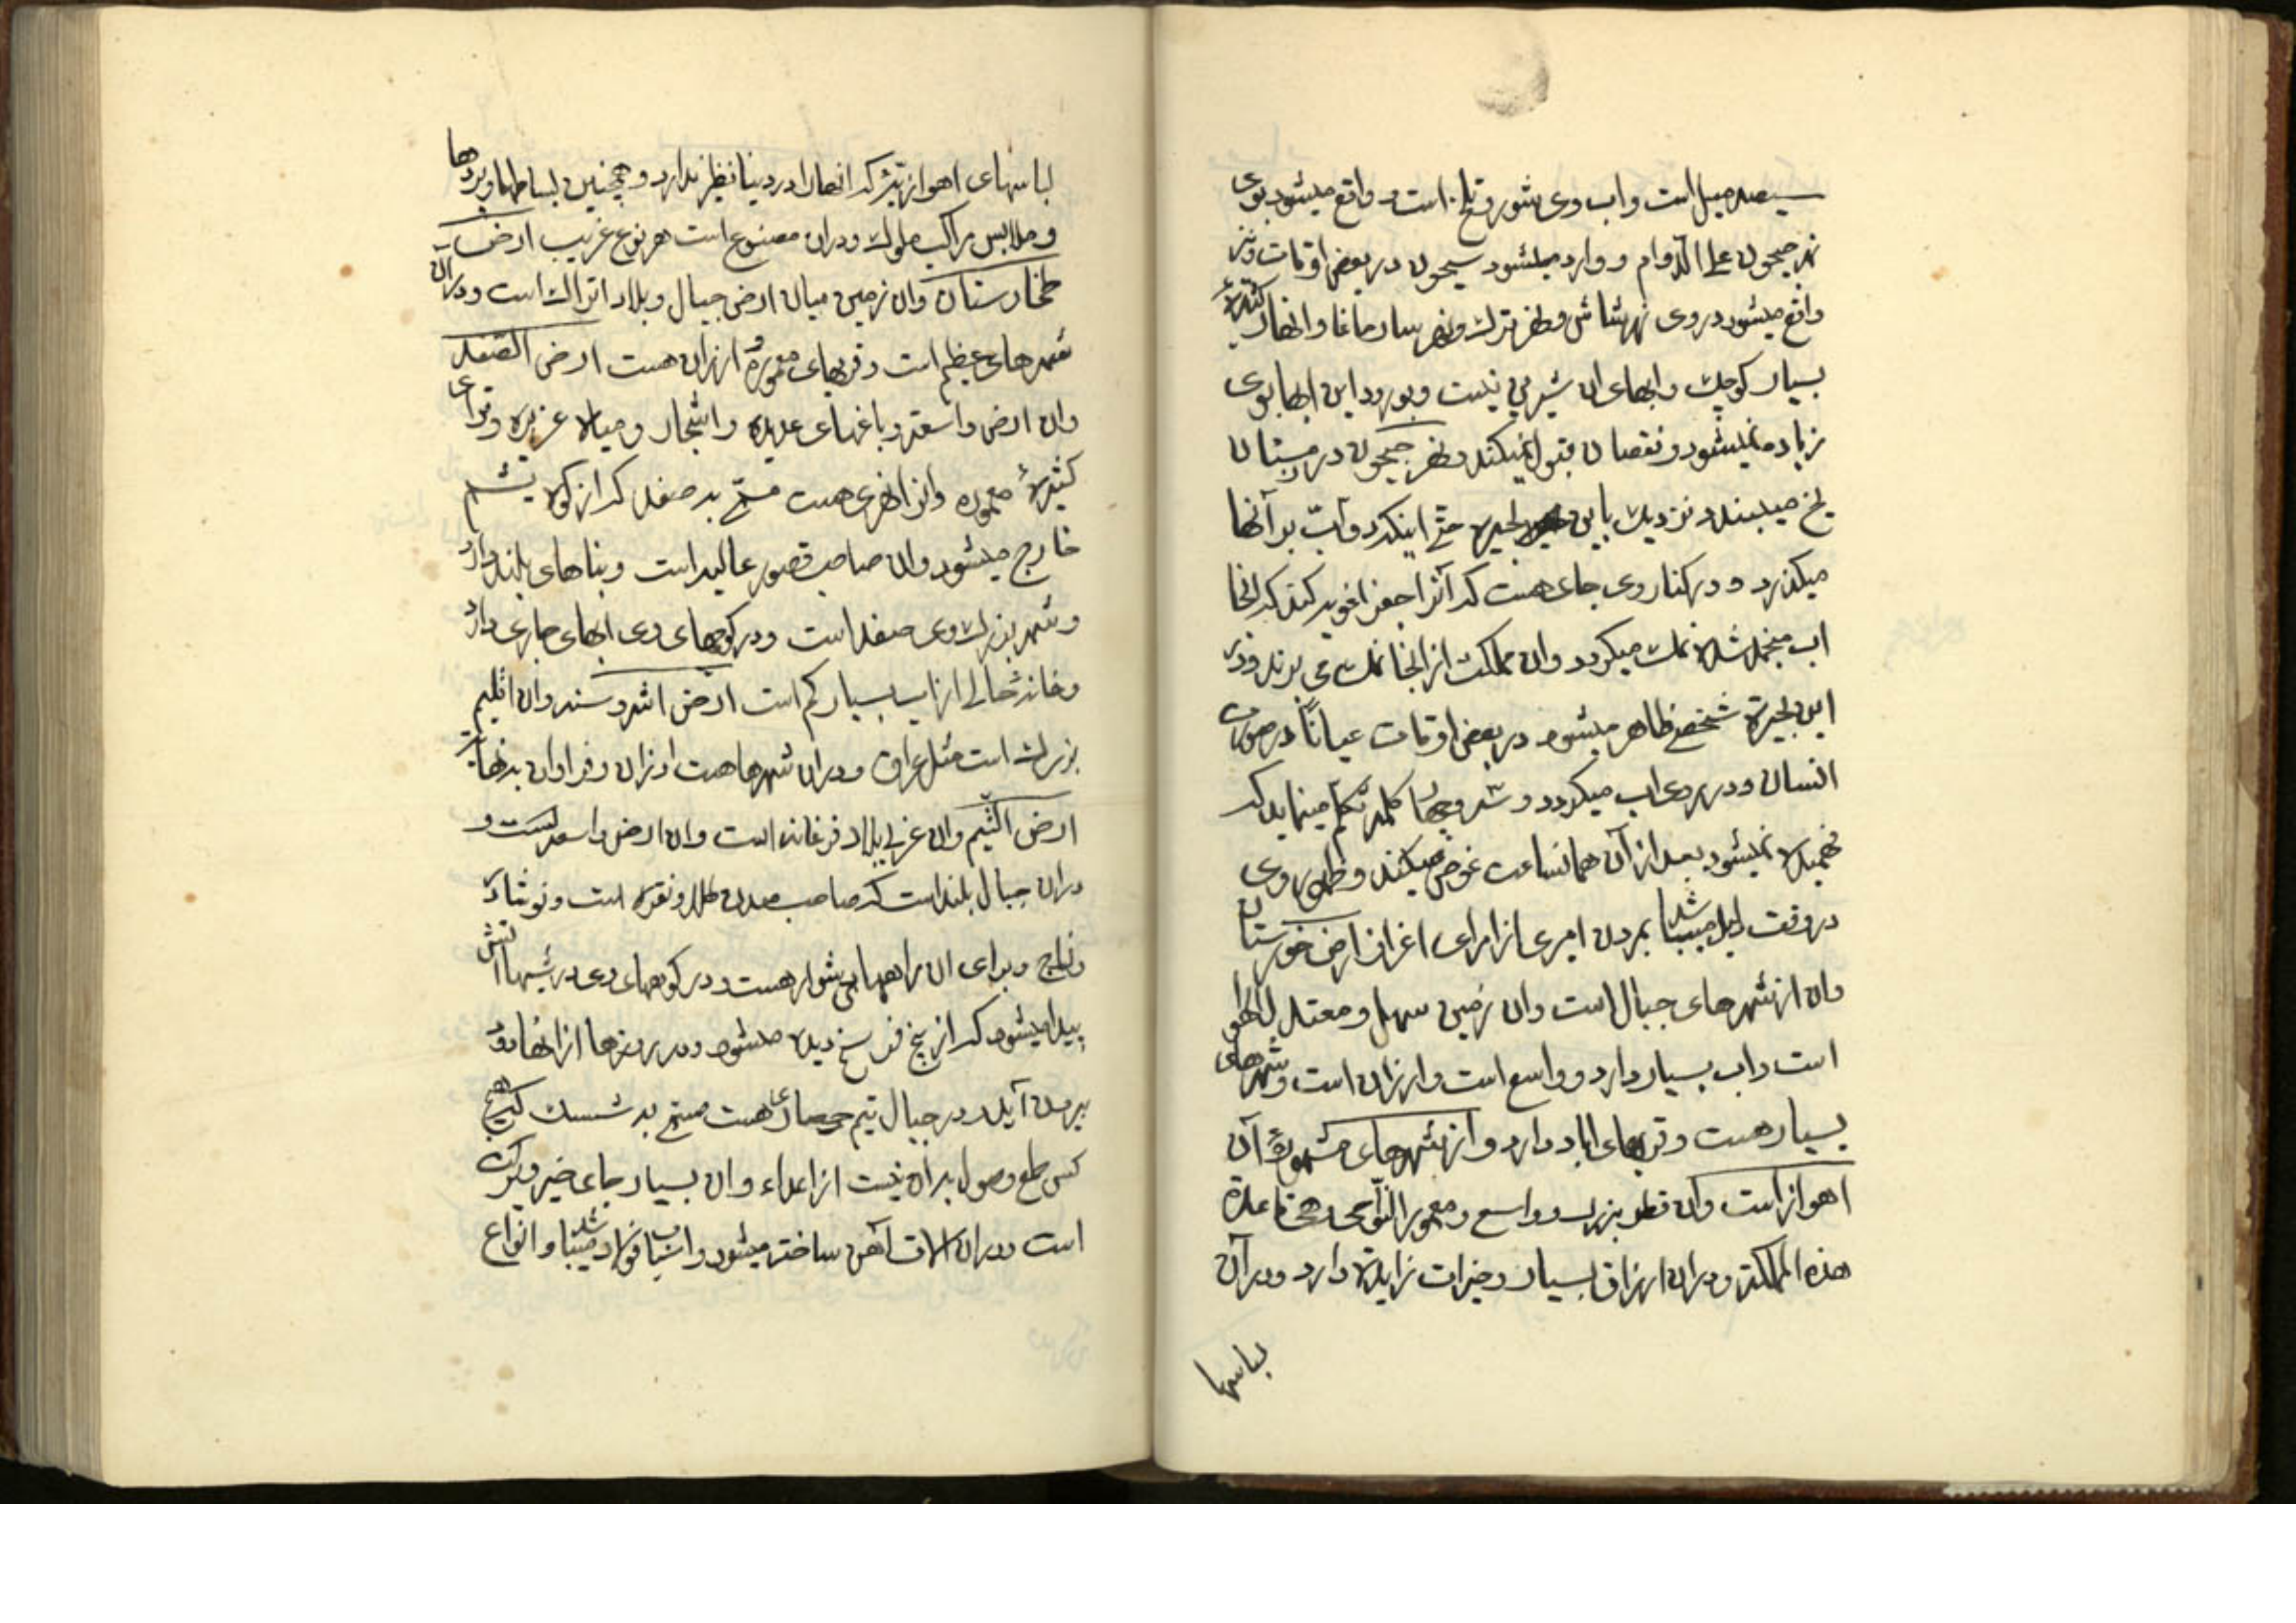 سیصد میل است واب وی شور وتلخ است و واقع میشود بوی
نهر جیحون علی الدوام و وارد میشود سیحون در بعض اوقات ونیز
واقع میشود در وی نهر شاش ونهر ترك ونهر وانهار کثیرهٔ
بسیار کوچك وابهای ان شیرین نیست وبورود این ابها بوی
زیاد نمیشود ونقصان قبول نمیکند ونهر جیحون در زمستان
یخ میبندد نزدیك باین بحیره حتی اینکه دوابّ بر آنها
میکذرد و در کنار وی جای هست که آنرا جغراغوبه کنند که انجا
اب منجمد شده نمك میکردد وان مملکت از انجا نمك می برند ودر
این بحیرة شخصی ظاهر میشود در بعض اوقات عیاناً در صورت
انسان ودر روی اب میکردد و سه وچهار کلمه تکلم مینماید که
فهمیده نمیشود بعد از آن همانساعت غوص میکند وظهور وی
در وقت دلیل میباشد بمردن امیری از امرای اغزان ارض خوزستان
وان از شهرهای جبال است وان زمین سهل ومعتدل الهوا
است واب بسیار دارد و واسع است وارزان است وشهرهای
بسیار هست وقریهای اباد دارد و از شهرهای مشهورهٔ آن
اهواز است وان قطر بزرك و واسع ومعمور النواحی هی قاعدة
هذه المملکة ودران ارزاق بسیار وخیرات زایدة دارد ودرآن
لباسها
لباسهای اهوازیّه که انها را در دنیا نظیر ندارد وهمچنین بساطها وپردها
وملابس مراکب ملوك ودران مصنوع است هر نوع غریب ارض
طخارستان وان زمین میان ارض جبال وبلاد اتراك است ودرآن
شهرهای عظیم است وقریهای معموره وارزان هست ارض الصغد
وان ارض واسعه وباغهای عدیده واشجار ومیاه غزیره وقرای
کثیرهٔ معموره وانرا نهری هست مسمّی به صغد که از کوه
خارج میشود وان صاحب قصور عالیه است وبناهای بلند دارد
وشهر بزرك وی صغد است ودر کوچهای وی ابهای جاری دارد
وخانهٔ خالی از اب بسیار کم است ارض اشروسنه وان اقلیم
بزرك است مثل عراق ودران شهرها هست ارزان وفراوان
ارض الثیم وان غربی بلاد فرغانه است وان ارض واسعه ایست و
دران جبال بلند است که صاحب معدن طلا ونقره است ونوشادر
وزاج وبرای ان راههای دشوار هست ودر کوههای وی در شبها آتش
پیدا میشود که از پنج فرسخ دیده میشود ودر روزها از انها دود
بیرون آید ودر جبال ثیم حصاری هست مسمی به هیچ
کس طمع وصول بران نیست از اعداء وان بسیار جای خیر وبرکت
است ودران الات آهن ساخته میشود واسباب فولاد میباشد وانواع